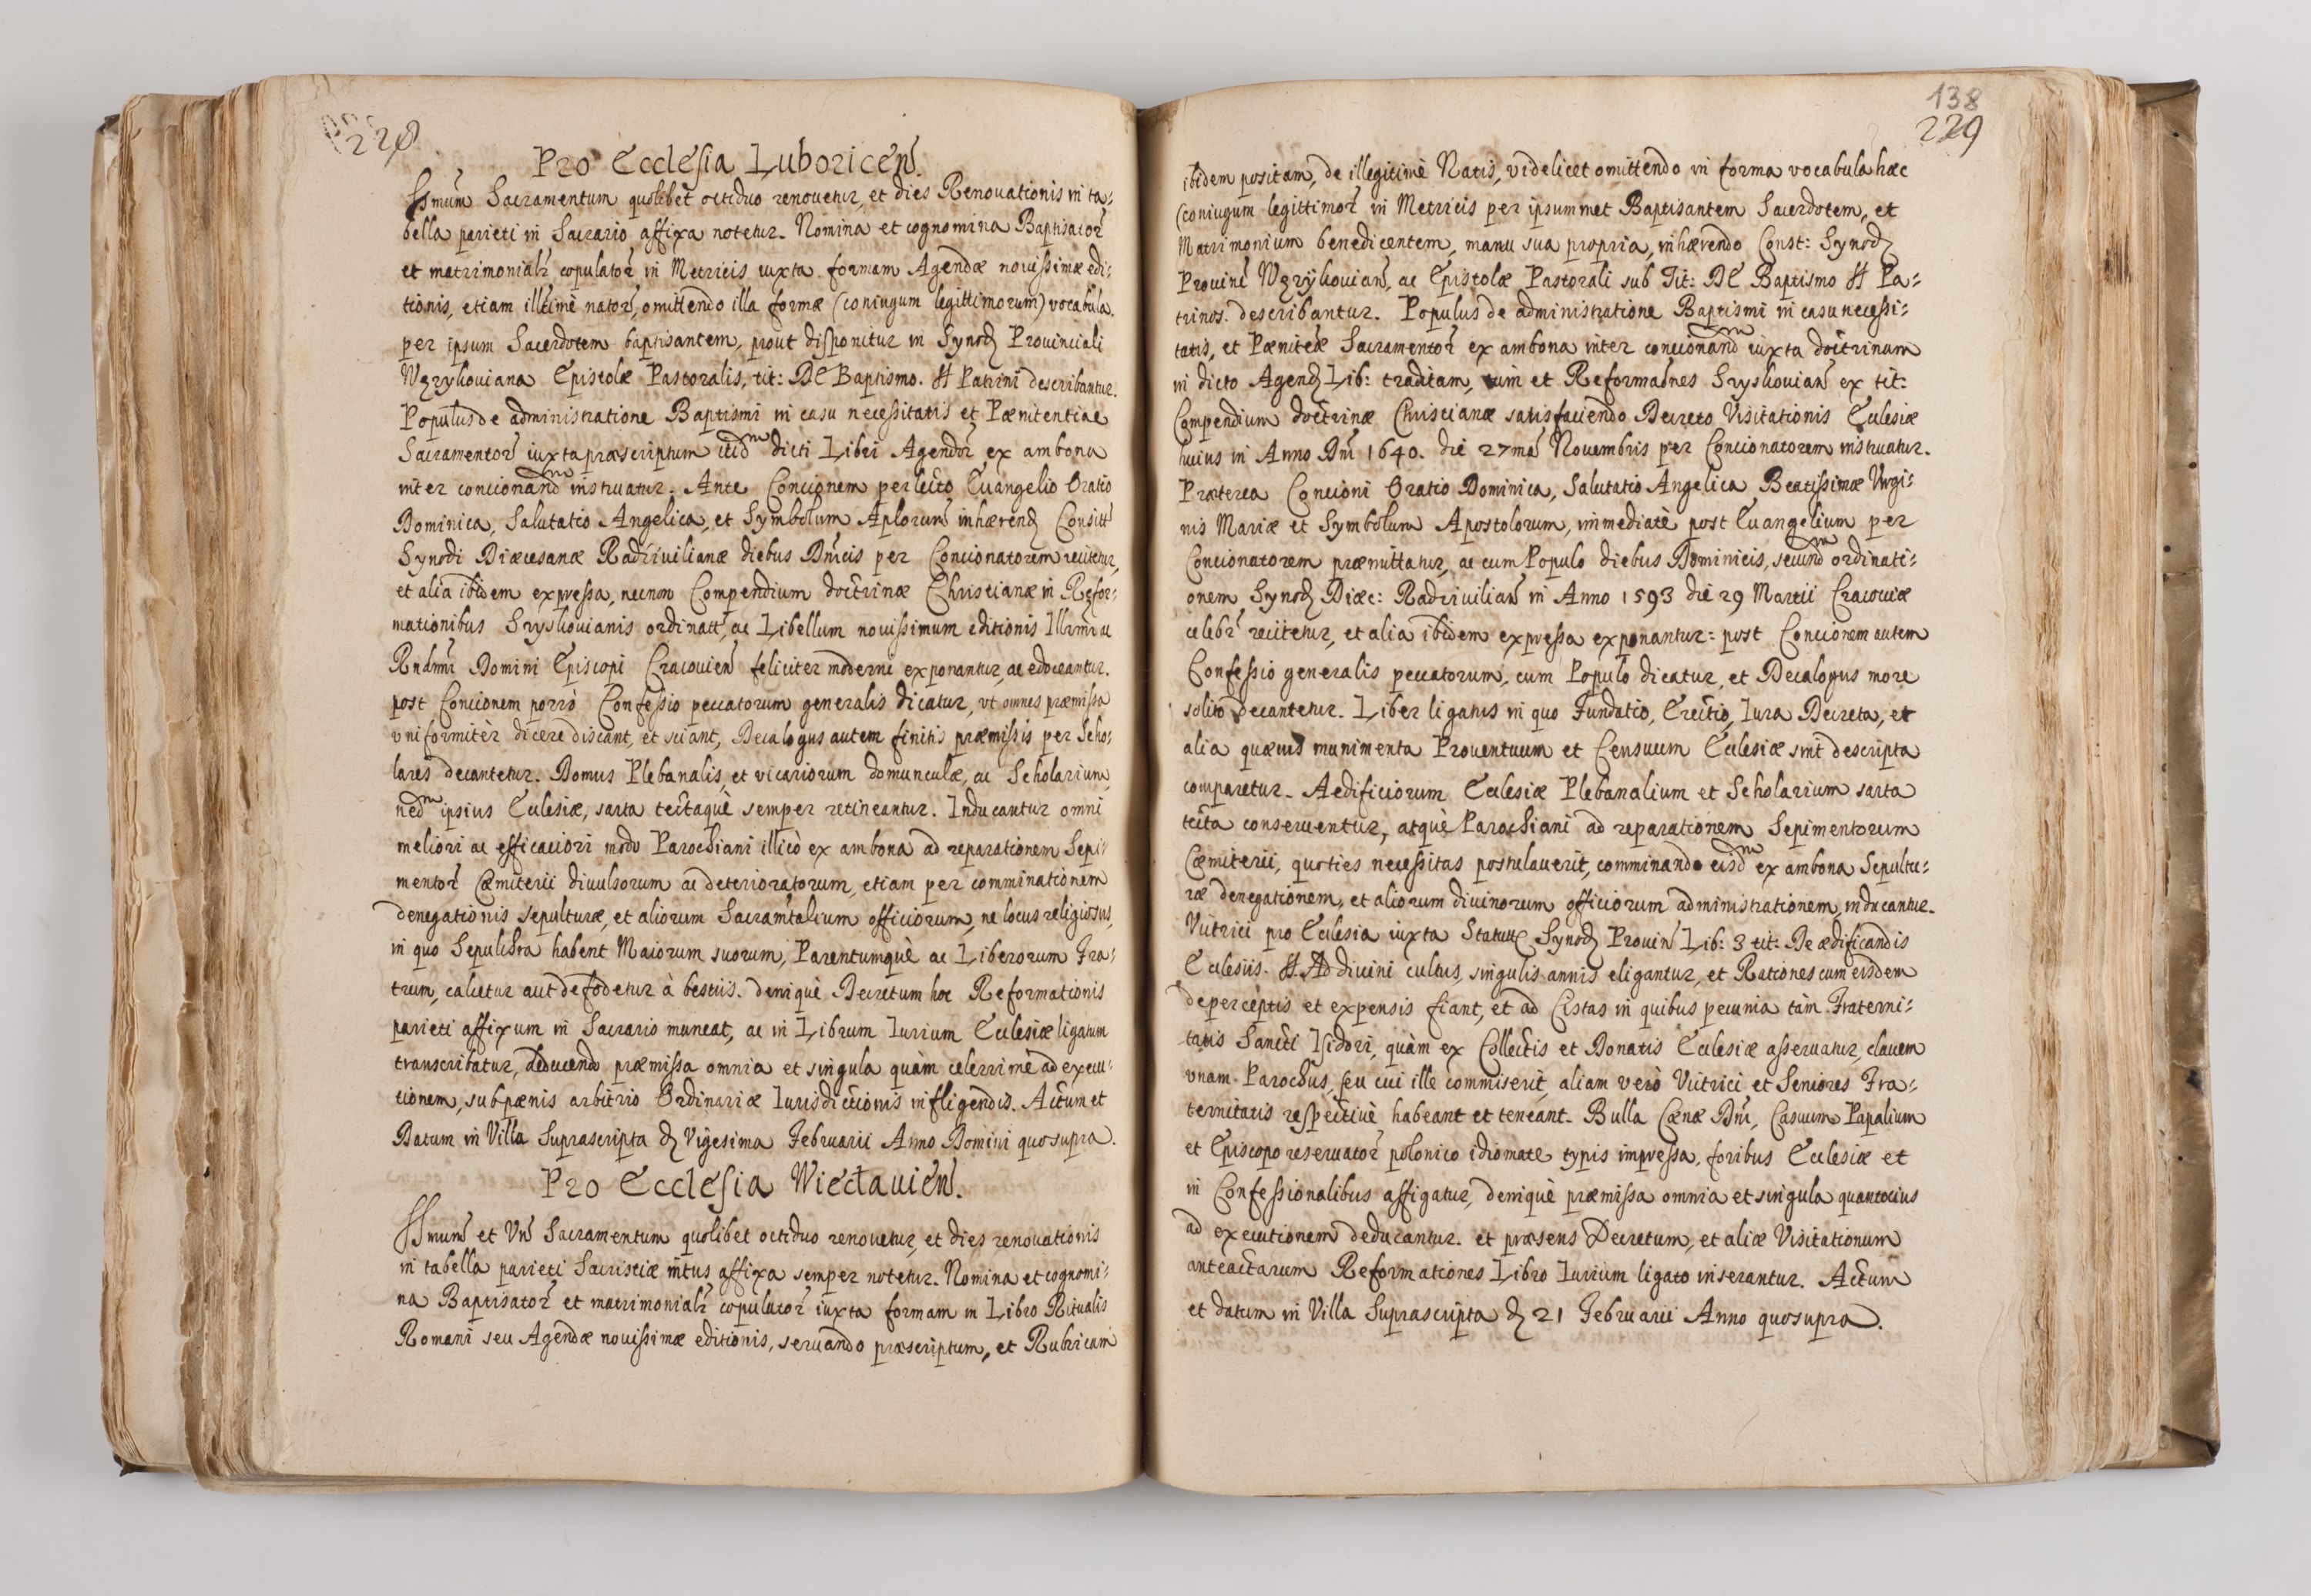 228
Pro Ecclesia Luboricen̄.
SSmum̄ Sacramentum quolibet octiduo renouetur, et dies Renouationis in ta:
bella parieti in Sacrario affixa notetur. Nomina et cognomina Baptisator
et matrimonialr copulator in Metricis iuxta formam Agendæ nouissimæ edi:
tionis, etiam illtimè nator, omittendo illa formæ (coniugum legittimorum) vocabula.
per ipsum Sacerdotem baptisantem, prout disponitur in Synod Prouinciali
Wężykouiana Epistolæ Pastoralis, tit: DE Baptismo. # Patrini describantur.
Populus de administratione Baptismi in casu necessitatis et Pænitentiae
Sacramentor iuxta præscriptum eiusdm dicti Libri Agendor ex ambona
inter concionandm instruatur. Ante Concionem perlecto Euangelio Oratio
Dominica, Salutatio Angelica, et Symbolum Aplorum inhærend Constitt
Synodi Diæcesanæ Radziuilianæ diebus Dnicis per Concionatorem recitetur,
et alia ibidem expressa, necnon Compendium doctrinæ Christianæ in Refor:
mationibus Szyskouianis ordinatt, ac Libellum nouissimum editionis Illrmi ac
Rndmi Domini Episcopi Cracouien feliciter moderni exponantur, ac edoceantur.
post Concionem porrò Confessio peccatorum generalis dicatur, vt omnes præmissa
vniformitèr dicere discant, et sciant, Decalogus autem finitis præmissis per Scho:
lares decantetur. Domus Plebanalis, et vicariorum domunculæ, ac Scholarium,
nedm ipsius Ecclesiæ, sarta tectaquè semper retineantur. Inducantur omni
meliori ac efficaciori modo Parochiani illicò ex ambona ad reparationem Sepi:
mentor Cœmiterii diuulsorum ac deterioratorum, etiam per comminationem
denegationis sepulturæ, et aliorum Sacramtalium officiorum, ne locus religiosus,
in quo Sepulchra habent Maiorum suorum, Parentumquè ac Liberorum Fra:
trum, calcetur aut defodetur à bestiis. deniquè Decretum hoc Reformationis
parieti affixum in Sacrario maneat, ac in Librum Iurium Ecclesiæ ligatum
transcribatur, deducendo præmissa omnia et singula quàm celerrimè ad execu:
tionem, sub pænis arbitrio Ordinariæ Iurisdictionis infligendis. Actum et
Datum in Villa Suprascripta d Vigesima Februarii Anno Domini quo supra.
Pro Ecclesia Wiectauien̄.
SSmum et Vn̄ Sacramentum quolibet octiduo renouetur, et dies renouationis
in tabella parieti Sacristiæ intus affixa semper notetur. Nomina et cognomi:
na Baptisator et matrimonialr copulator iuxta formam in Libro Ritualis
Romani seu Agendæ nouissimæ editionis, seruando præscriptum, et Rubricam
138
229
ibidem positam, de illegitimè Natis, videlicet omittendo in forma vocabula hæc
(coniugum legittimor in Metricis per ipsummet Baptisantem Sacerdotem, et
Matrimonium benedicentem, manu sua propria, inhærendo Const: Synod
Prouin Wężykouian, ac Epistolæ Pastorali sub Tit: DE Baptismo # Pa:
trinos. describantur. Populus de administratione Baptismi in casu necessi:
tatis, et Pænitæ Sacramentor ex ambona inter concionandm iuxta doctrinam
in dicto Agend Lib: traditam, tum et Reformaones Szyskouian ex tit:
Compendium doctrinæ Christianæ satisfaciendo Decreto Visitationis Ecclesiæ
huius in Anno Dni 1640. die 27ma Nouembris per Concionatorem instruatur.
Præterea Concioni Oratio Dominica, Salutatio Angelica Beatissimæ Virgi:
nis Mariæ et Symbolum Apostolorum, immediatè post Euangelium per
Concionatorem præmittatur, ac cum Populo diebus Dominicis, secundm ordinati:
onem Synod Diæc: Radziuilian in Anno 1593 die 29 Martii Cracouiæ
celebr recitetur, et alia ibidem expressa exponantur: post Concionem autem
Confessio generalis peccatorum, cum Populo dicatur, et Decalogus more
solito decantetur. Liber ligatus in quo Fundatio, Erectio, Iura Decreta, et
alia quæuis munimenta Prouentuum et Censuum Ecclesiæ sint descripta
comparetur. Aedificiorum Ecclesiæ Plebanalium et Scholarium sarta
tecta conseruentur, atquè Parochiani ad reparationem Sepimentorum
Cœmiterii, quoties necessitas postulauerit, comminando eisdm ex ambona Sepultu:
ræ denegationem, et aliorum diuinorum officiorum administrationem, inducantur.
Vitrici pro Ecclesia iuxta Statutt Synod Prouin Lib: 3 tit: De ædificandis
Ecclesiis. # Ad diuini cultus, singulis annis eligantur, et Rationes cum eisdem
de perceptis et expensis fiant, et ad Cistas in quibus pecunia tàm Fraterni:
tatis Sancti Isidori, quàm ex Collectis et Donatis Ecclesiæ asseruatur, clauem
vnam Parochus, seu cui ille commiserit, aliam verò Vitrici et Seniores Fra:
ternitatis respectiuè habeant et teneant. Bulla Cænæ Dni, Casuum Papalium
et Episcopo reseruator polonico idiomate typis impressa, foribus Ecclesiæ et
in Confessionalibus affigatur, deniquè præmissa omnia et singula quantocius
ad executionem deducantur. et præsens Decretum, et aliæ Visitationum
anteactarum Reformationes Libro Iurium ligato inserantur. Actum
et datum in Villa Suprascripta d 21 Februarii Anno quo supra.